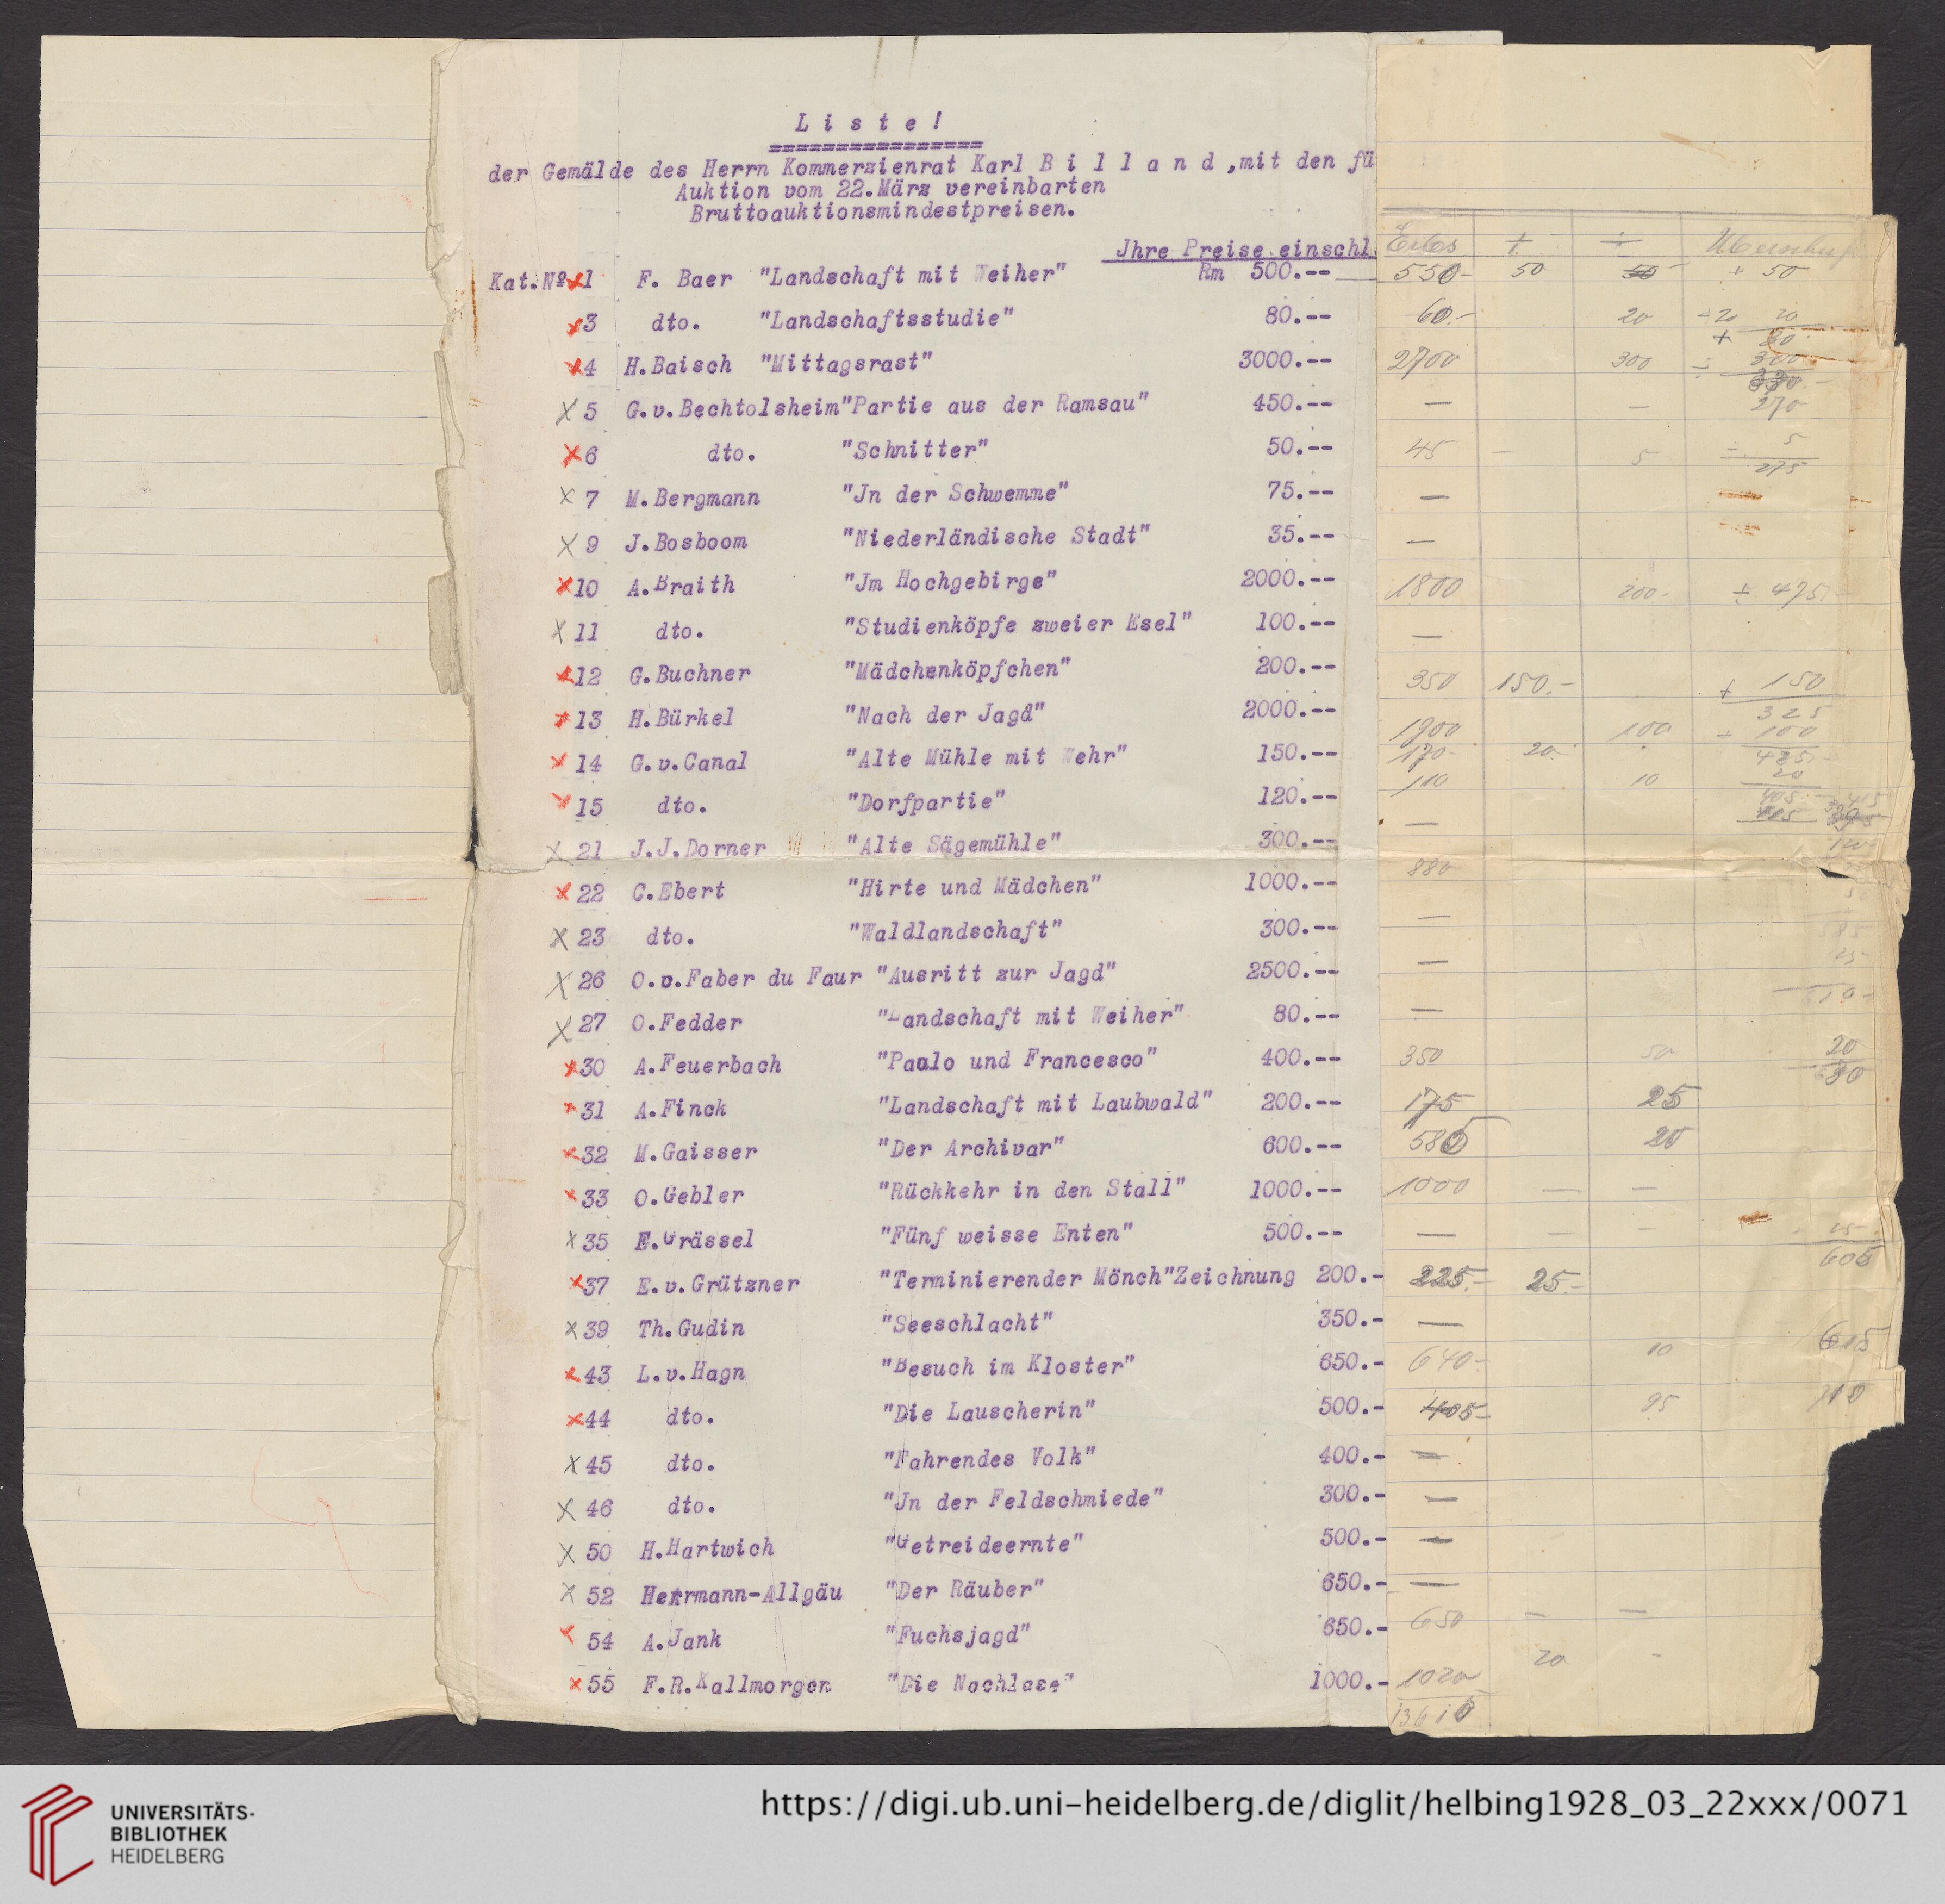 L i s t e !
================
der Gemälde des Herrn Kommerzienrat Karl B i l l a n d ,mit den fü
Auktion vom 22.März vereinbarten
Bruttoauktionsmindestpreisen.
Jhre Preise einschl. Erlös + ÷
Kat.No 1 F. Baer "Landschaft mit Weiher" Rm 500.-- 550- 50 50 + 50
3 dto. "Landschaftsstudie" 80.-- 60.- 20 ÷20 20
4 H.Baisch "Mittagsrast" 3000.-- 2700 300 ÷ 300
5 G.v.Bechtolsheim"Partie aus der Ramsau" 450.-- — — 270
6 dto. "Schnitter" 50.-- 45 — 5 ÷ 5
275
7 M.Bergmann "Jn der Schwemme" 75.-- —
9 J.Bosboom "Niederländische Stadt" 35.-- —
10 A.Braith "Jm Hochgebirge" 2000.-- 1800 200.- ÷ 475.-
11 dto. "Studienköpfe zweier Esel" 100.-- —
12 G.Buchner "Mädchenköpfchen" 200.-- 350 150.- + 150
325
13 H.Bürkel "Nach der Jagd" 2000.-- 1900 100 ÷ 100
14 G.v.Canal "Alte Mühle mit Wehr" 150.-- 170- 20.- 425.-
20
15 dto. "Dorfpartie" 120.-- 110 10 405
21 J.J.Dorner "Alte Sägemühle" 300.-- —
22 C.Ebert "Hirte und Mädchen" 1000.-- 880
23 dto. "Waldlandschaft" 300.-- —
26 O.v.Faber du Faur "Ausritt zur Jagd" 2500.-- —
27 O.Fedder "Landschaft mit Weiher" 80.-- —
30 A.Feuerbach "Paolo und Francesco" 400.-- 350 50 20
31 A.Finck "Landschaft mit Laubwald" 200.-- 175 25
32 M.Gaisser "Der Archivar" 600.-- 580 20
33 O.Gebler "Rückkehr in den Stall" 1000.-- 1000 — —
35 E.Grässel "Fünf weisse Enten" 500.-- — — —
605
37 E.v.Grützner "Terminierender Mönch"Zeichnung 200.- 225.- 25.-
39 Th.Gudin "Seeschlacht" 350.- —
43 L.v.Hagn "Besuch im Kloster" 650.- 640- 10 615
44 dto. "Die Lauscherin" 500.- 405- 95 710
45 dto. "Fahrendes Volk" 400.- —
46 dto. "Jn der Feldschmiede" 300.- —
50 H.Hartwich "Getreideernte" 500.- —
52 Herrmann-Allgäu "Der Räuber" 650.- —
54 A.Jank "Fuchsjagd" 650.- 650 — —
55 F.R.Kallmorgen "Die Nachlese" 1000.- 1020 20 -
13610
UNIVERSITÄTS-
BIBLIOTHEK
HEIDELBERG
https://digi.ub.uni-heidelberg.de/diglit/helbing1928_03_22xxx/0071